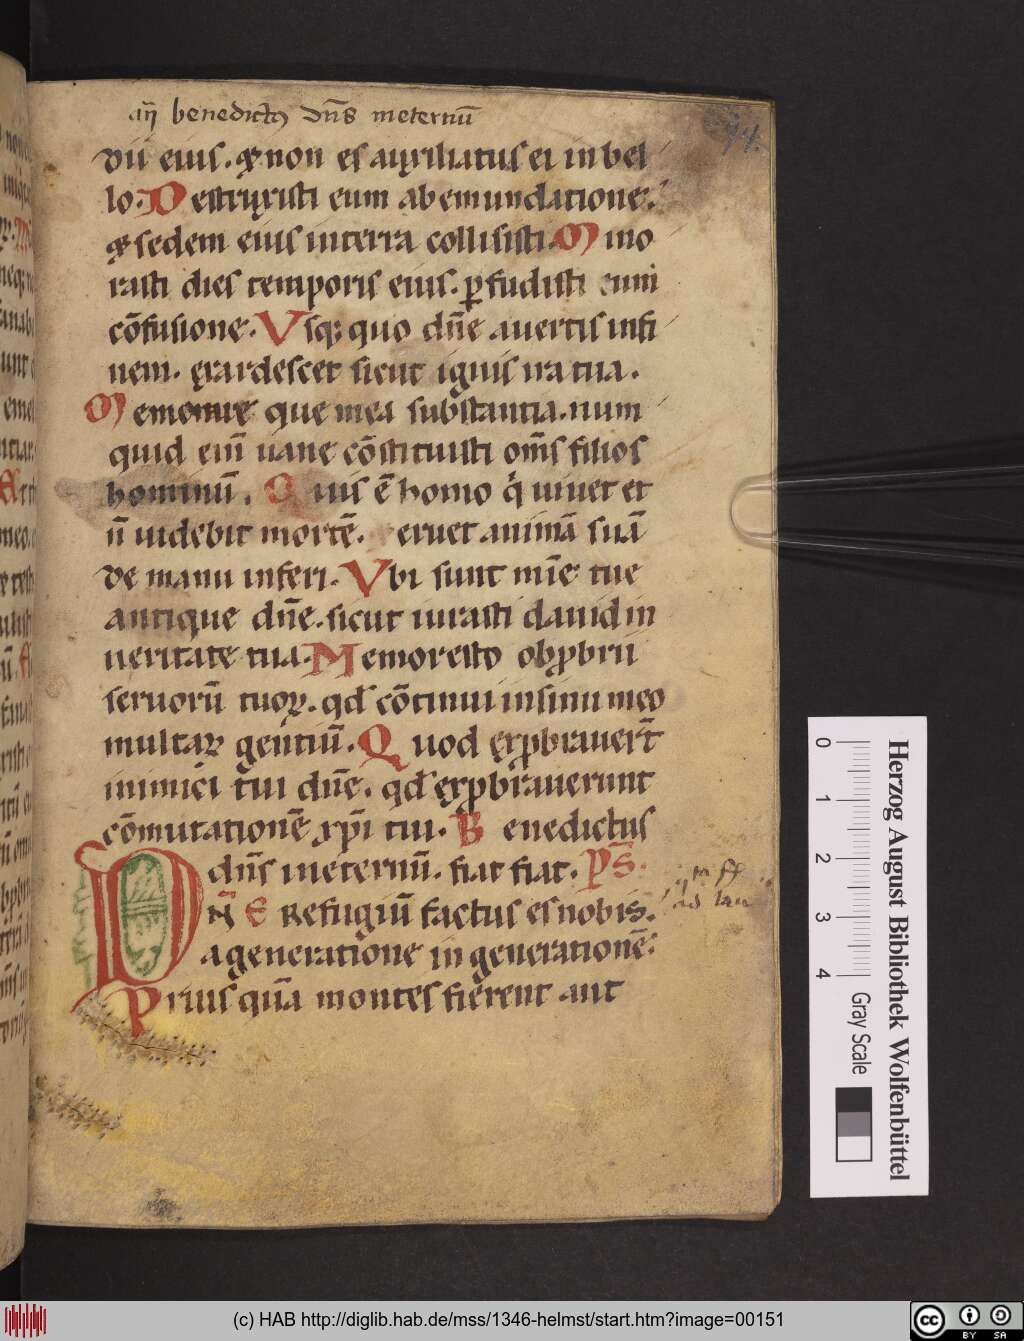 añ benedict9 dñs ineternū
74.
dii eius. & non es auxiliatus ei in bel
lo. Destruxisti eum ab emundatione.
& sedem eius in terra collisisti. Mino
rasti dies temporis eius. ꝑfudisti eum
cōfusione. Vsq; quo dñe auertis in fi
nem. exardescet sicut ignis ira tua.
Memorare que mea substantia. num
quid eni̅ uane cōstituisti om̄s filios
hominū. Quis ē homo q̇ uiuet et
n̄ uidebit mortē. eruet animā suā
de manu inferi. Vbi sunt mīe tue
antique dñe. sicut iurasti dauid in
ueritate tua. Memor esto obprbrii
seruorū tuoꝝ. qd̄ cōtinui in sinu meo
multaꝝ gentiū. Quod exprbrauert̄
inimici tui dñe. qd̄ exprbrauerunt
cōmutationē xpi̅ tui. Benedictus
dñs ineternū. fiat fiat. Ps̄.
DNE Refugiū factus es nobis.
a generatione in generationē.
Prius quā montes fierent aut
Herzog August Bibliothek Wolfenbüttel
0 1 2 3 4
Gray Scale
(c) HAB http://diglib.hab.de/mss/1346-helmst/start.htm?image=00151
cc BY SA